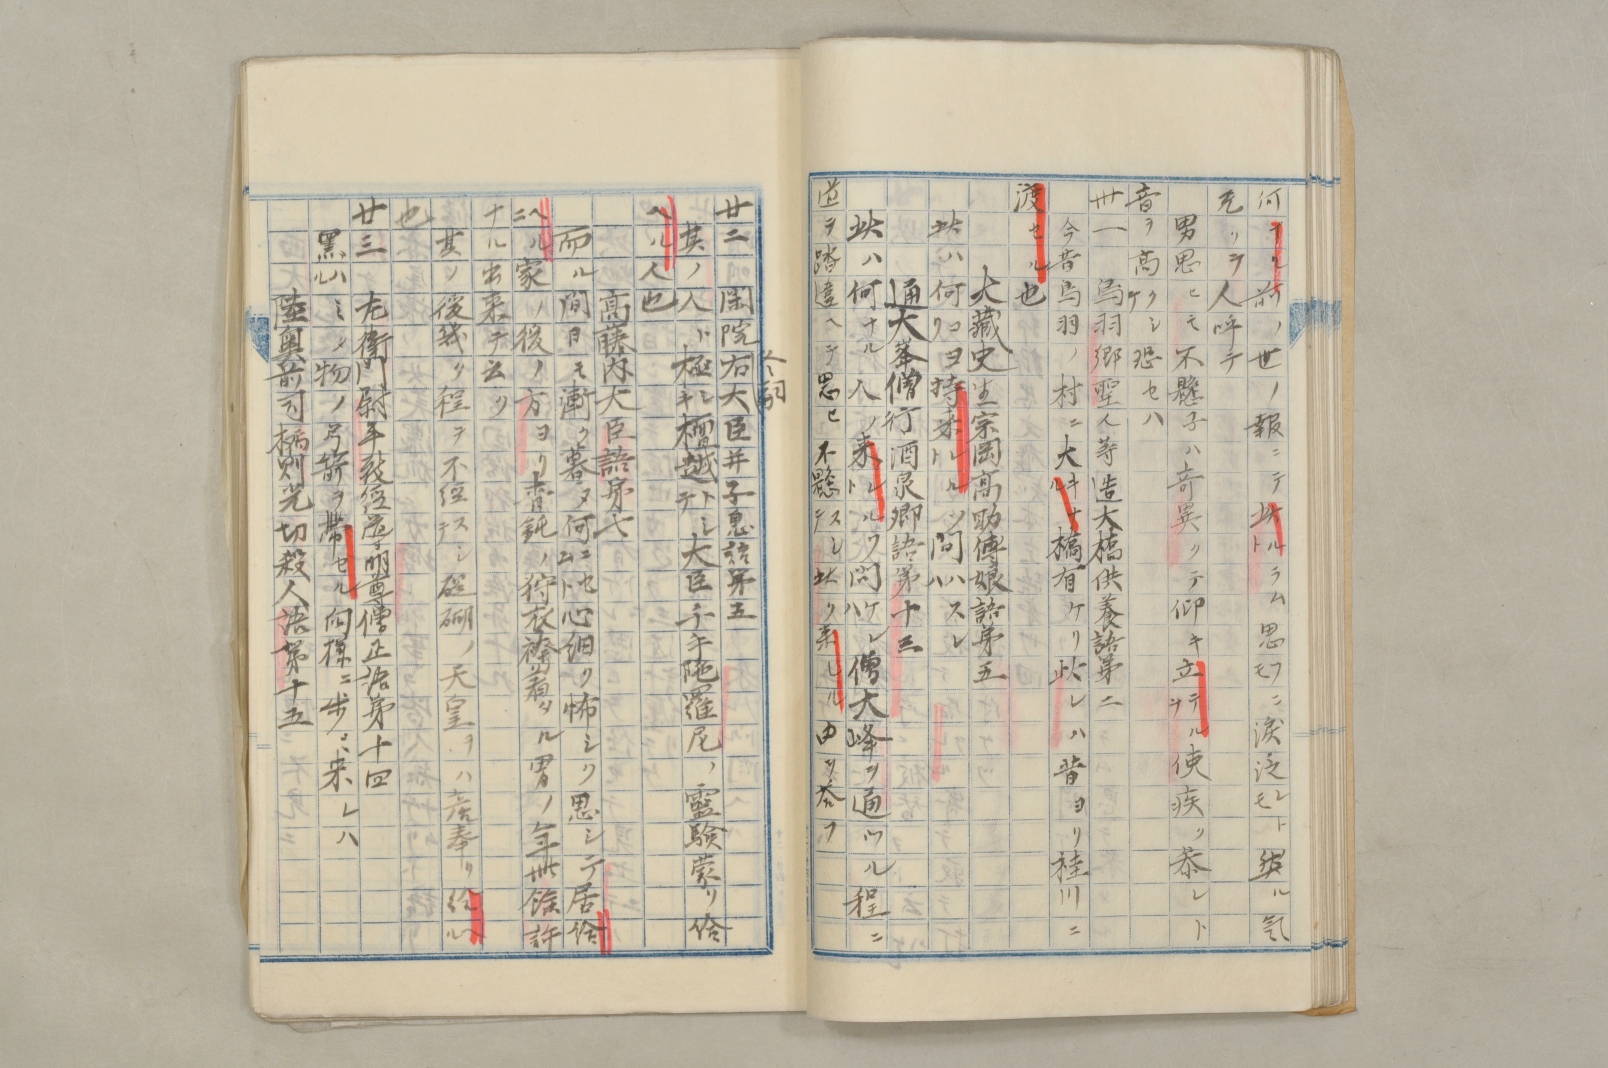 何ナル前ノ世ノ報ニテ此トルラム思モフニ涙泛モレト然ル気
元リヲ人呼テ
男思ヒモ不懸子ハ奇異クテ仰キ立テナル使疾ク恭レト
音ヲ高クケシ恐セハ
卅一 鳥羽郷聖人等造大橋供養語第二
今昔鳥羽ノ村ニ大キルナ橋有ケリ此レハ昔ヨリ桂川ニ
渡セル也
大藏史生宗岡高助傳娘語第五
此ハ何コヨリ持来トルソ問ハハスレ
通大峯僧行酒泉郷語第十三
此ハ何ナル人ノ来トレルソ問ハケレ僧大峰ヲ通ツル程ニ
道ヲ踏違ヘテ思ヒ不懸テスシ此クリ来レル由ヲ答フ
令嗣
廿二 閑院右大臣并子息語第五
其ノ人ト極キシ檀越テトシ大臣千手陁羅尼ノ靈験蒙リ給
ヘル人也
高藤内大臣語第七
而ル間日モ漸ク暮ヌ何ニセムト心細ク怖シク思シテ居給
ヘルニ家ノ後ノ方ヨリ青鈍ノ狩衣袴着タル男ノ年卌餘許
ナル出来テ云ク
其ノ後幾ク程ヲ不経スシテ醍醐ノ天皇ヲハ産奉リ給ヘル
也
廿三 左衛門尉平致経導明尊僧正語第十四
黒ハルミタメ物ノ弓箭ヲ帯セル同様ニ歩ミ来レハ
陸奥前司橘則光切殺人語第十五